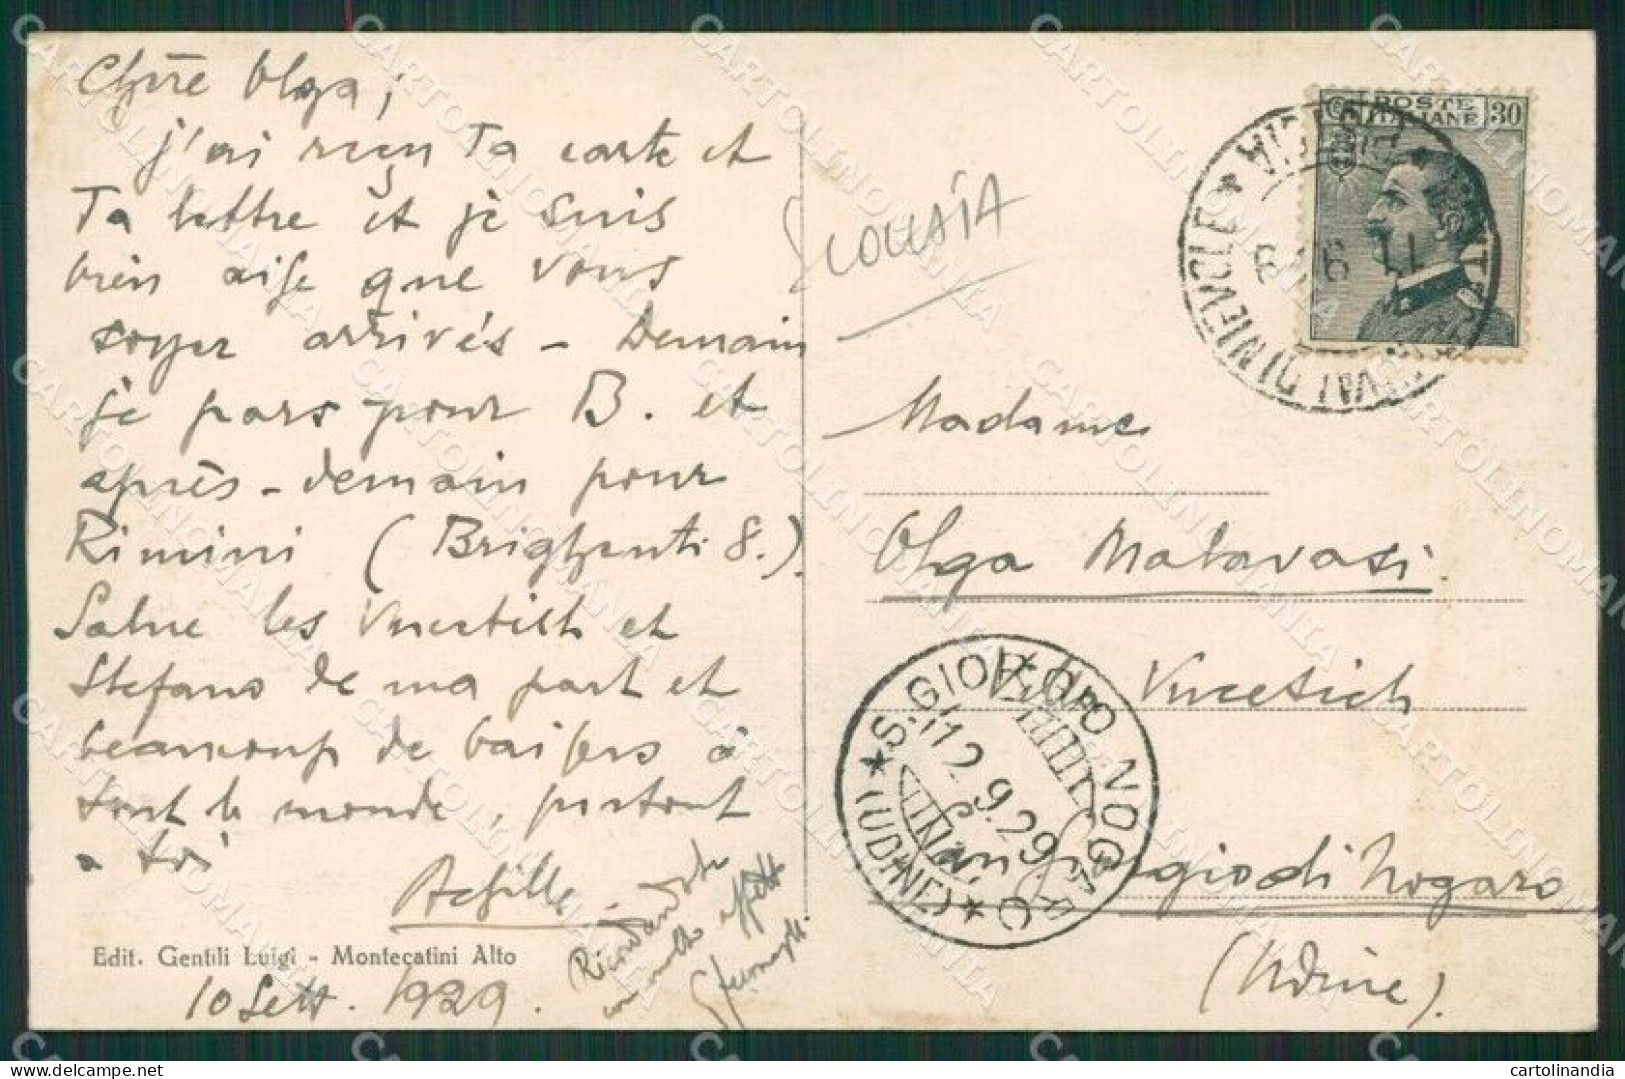 Chère Olga,
j'ai reçu Ta carte et
Ta lettre et je suis
bien aise que vous
soyez arrivés - Demain
je pars pour B. et
après-demain pour
Rimini (Brighenti 8.).
Salue les Vucetich et
Stefano de ma part et
beaucoup de baisers à
tout le monde, partout
a toi
Achille.
Ricordandola
con molto affetto
Edit. Gentili Luigi - Montecatini Alto
10 Sett. 1929.
POSTE
ITALIANE
30
VALDINIEVOLE
Madame
Olga Malavasi
Villa Vucetich
San Giorgio di Nogaro
(Udine).
S. GIORGIO NOGARO
12.9.29
(UDINE)
CARTOLINOMANIA
cartolinandia